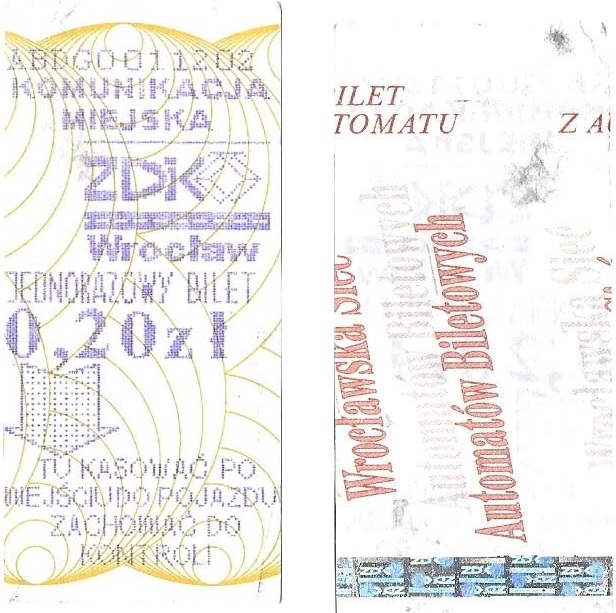 ABDG0011202
KOMUNIKACJA
MIEJSKA
ZDiK
Wrocław
JEDNORAZOWY BILET
0,20zł
TU KASOWAĆ PO
WEJŚCIU DO POJAZDU
ZACHOWAĆ DO
KONTROLI
ILET
TOMATU Z AU
Wrocławska Sieć
Automatów Biletowych
Automatów Biletowych
Wrocławska Sieć